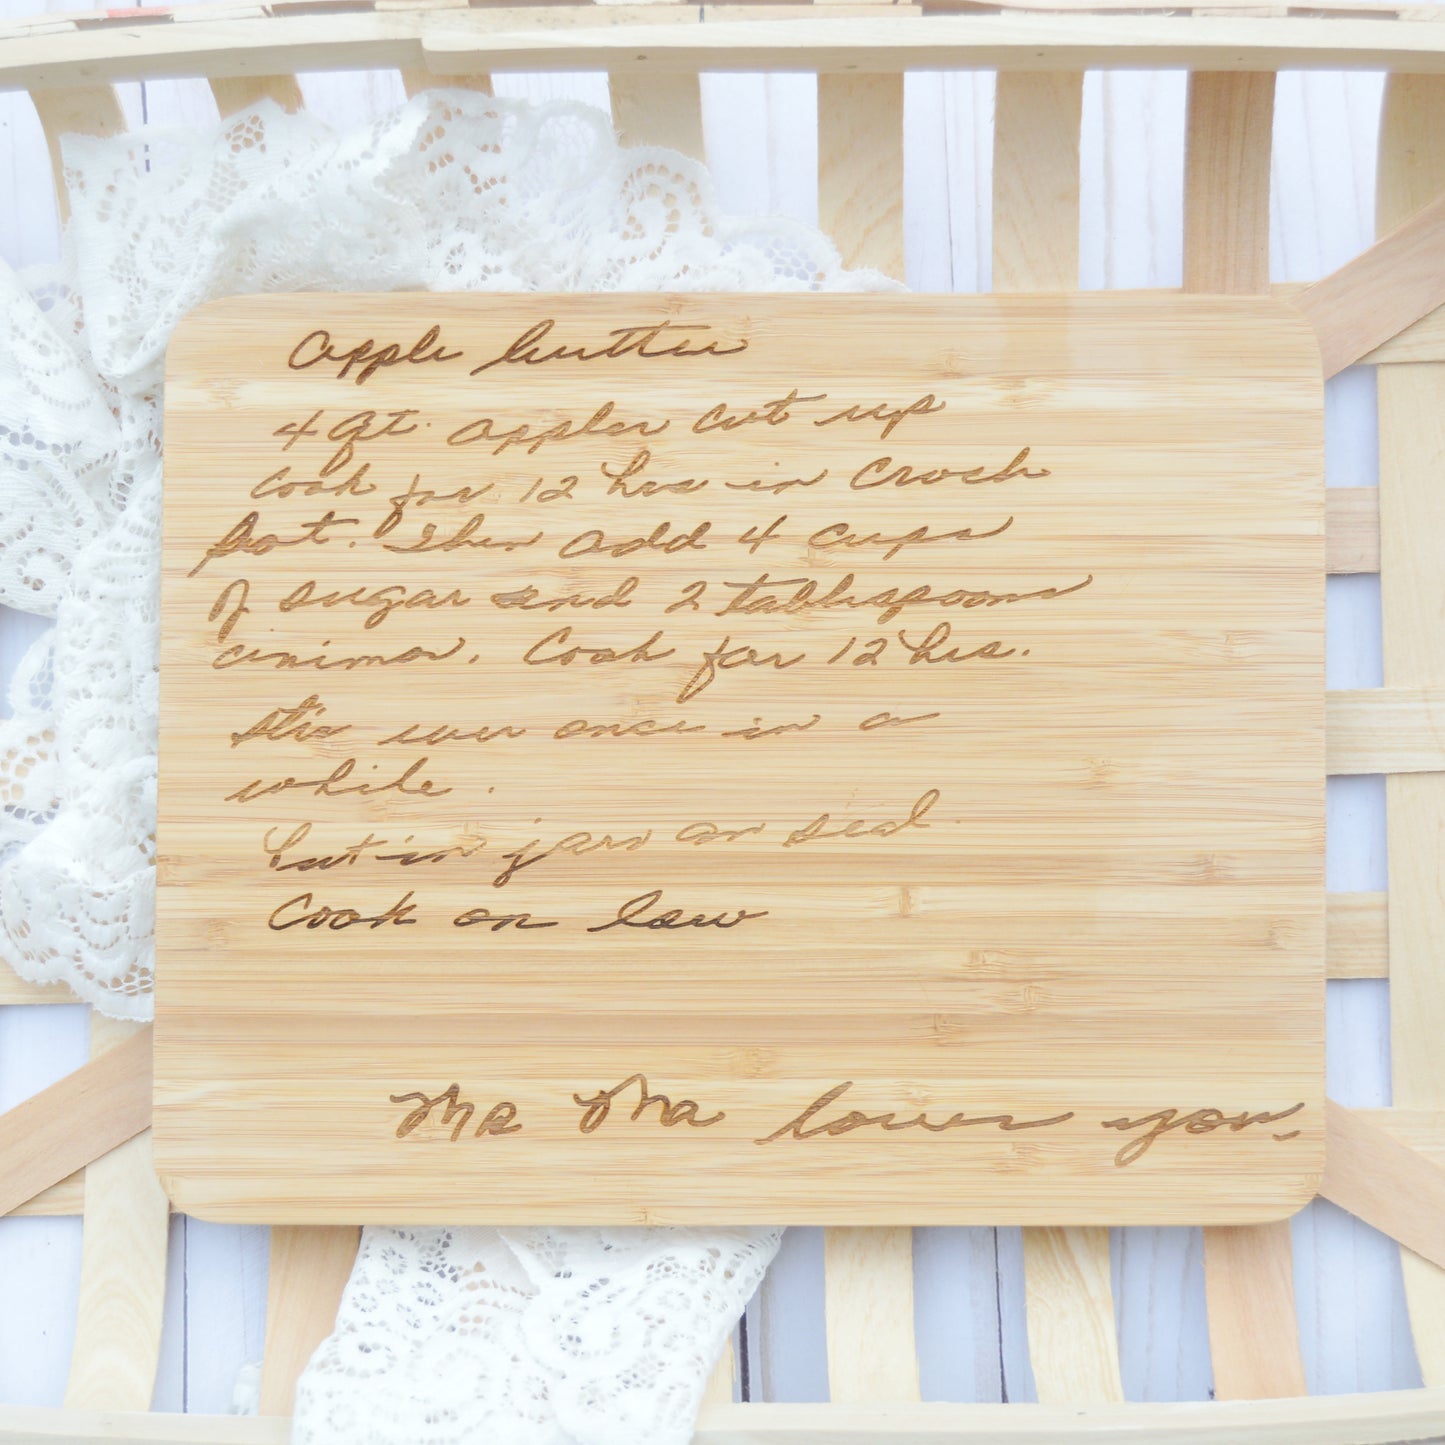 Apple butter
4 qt. apples cut up
Cook for 12 hrs in Crock
Pot. Then add 4 cups
of sugar and 2 tablespoons
cinimon. Cook for 12 hrs.
Stir ever once in a
while.
Put in jars an seal.
Cook on low
Ma Ma loves you.